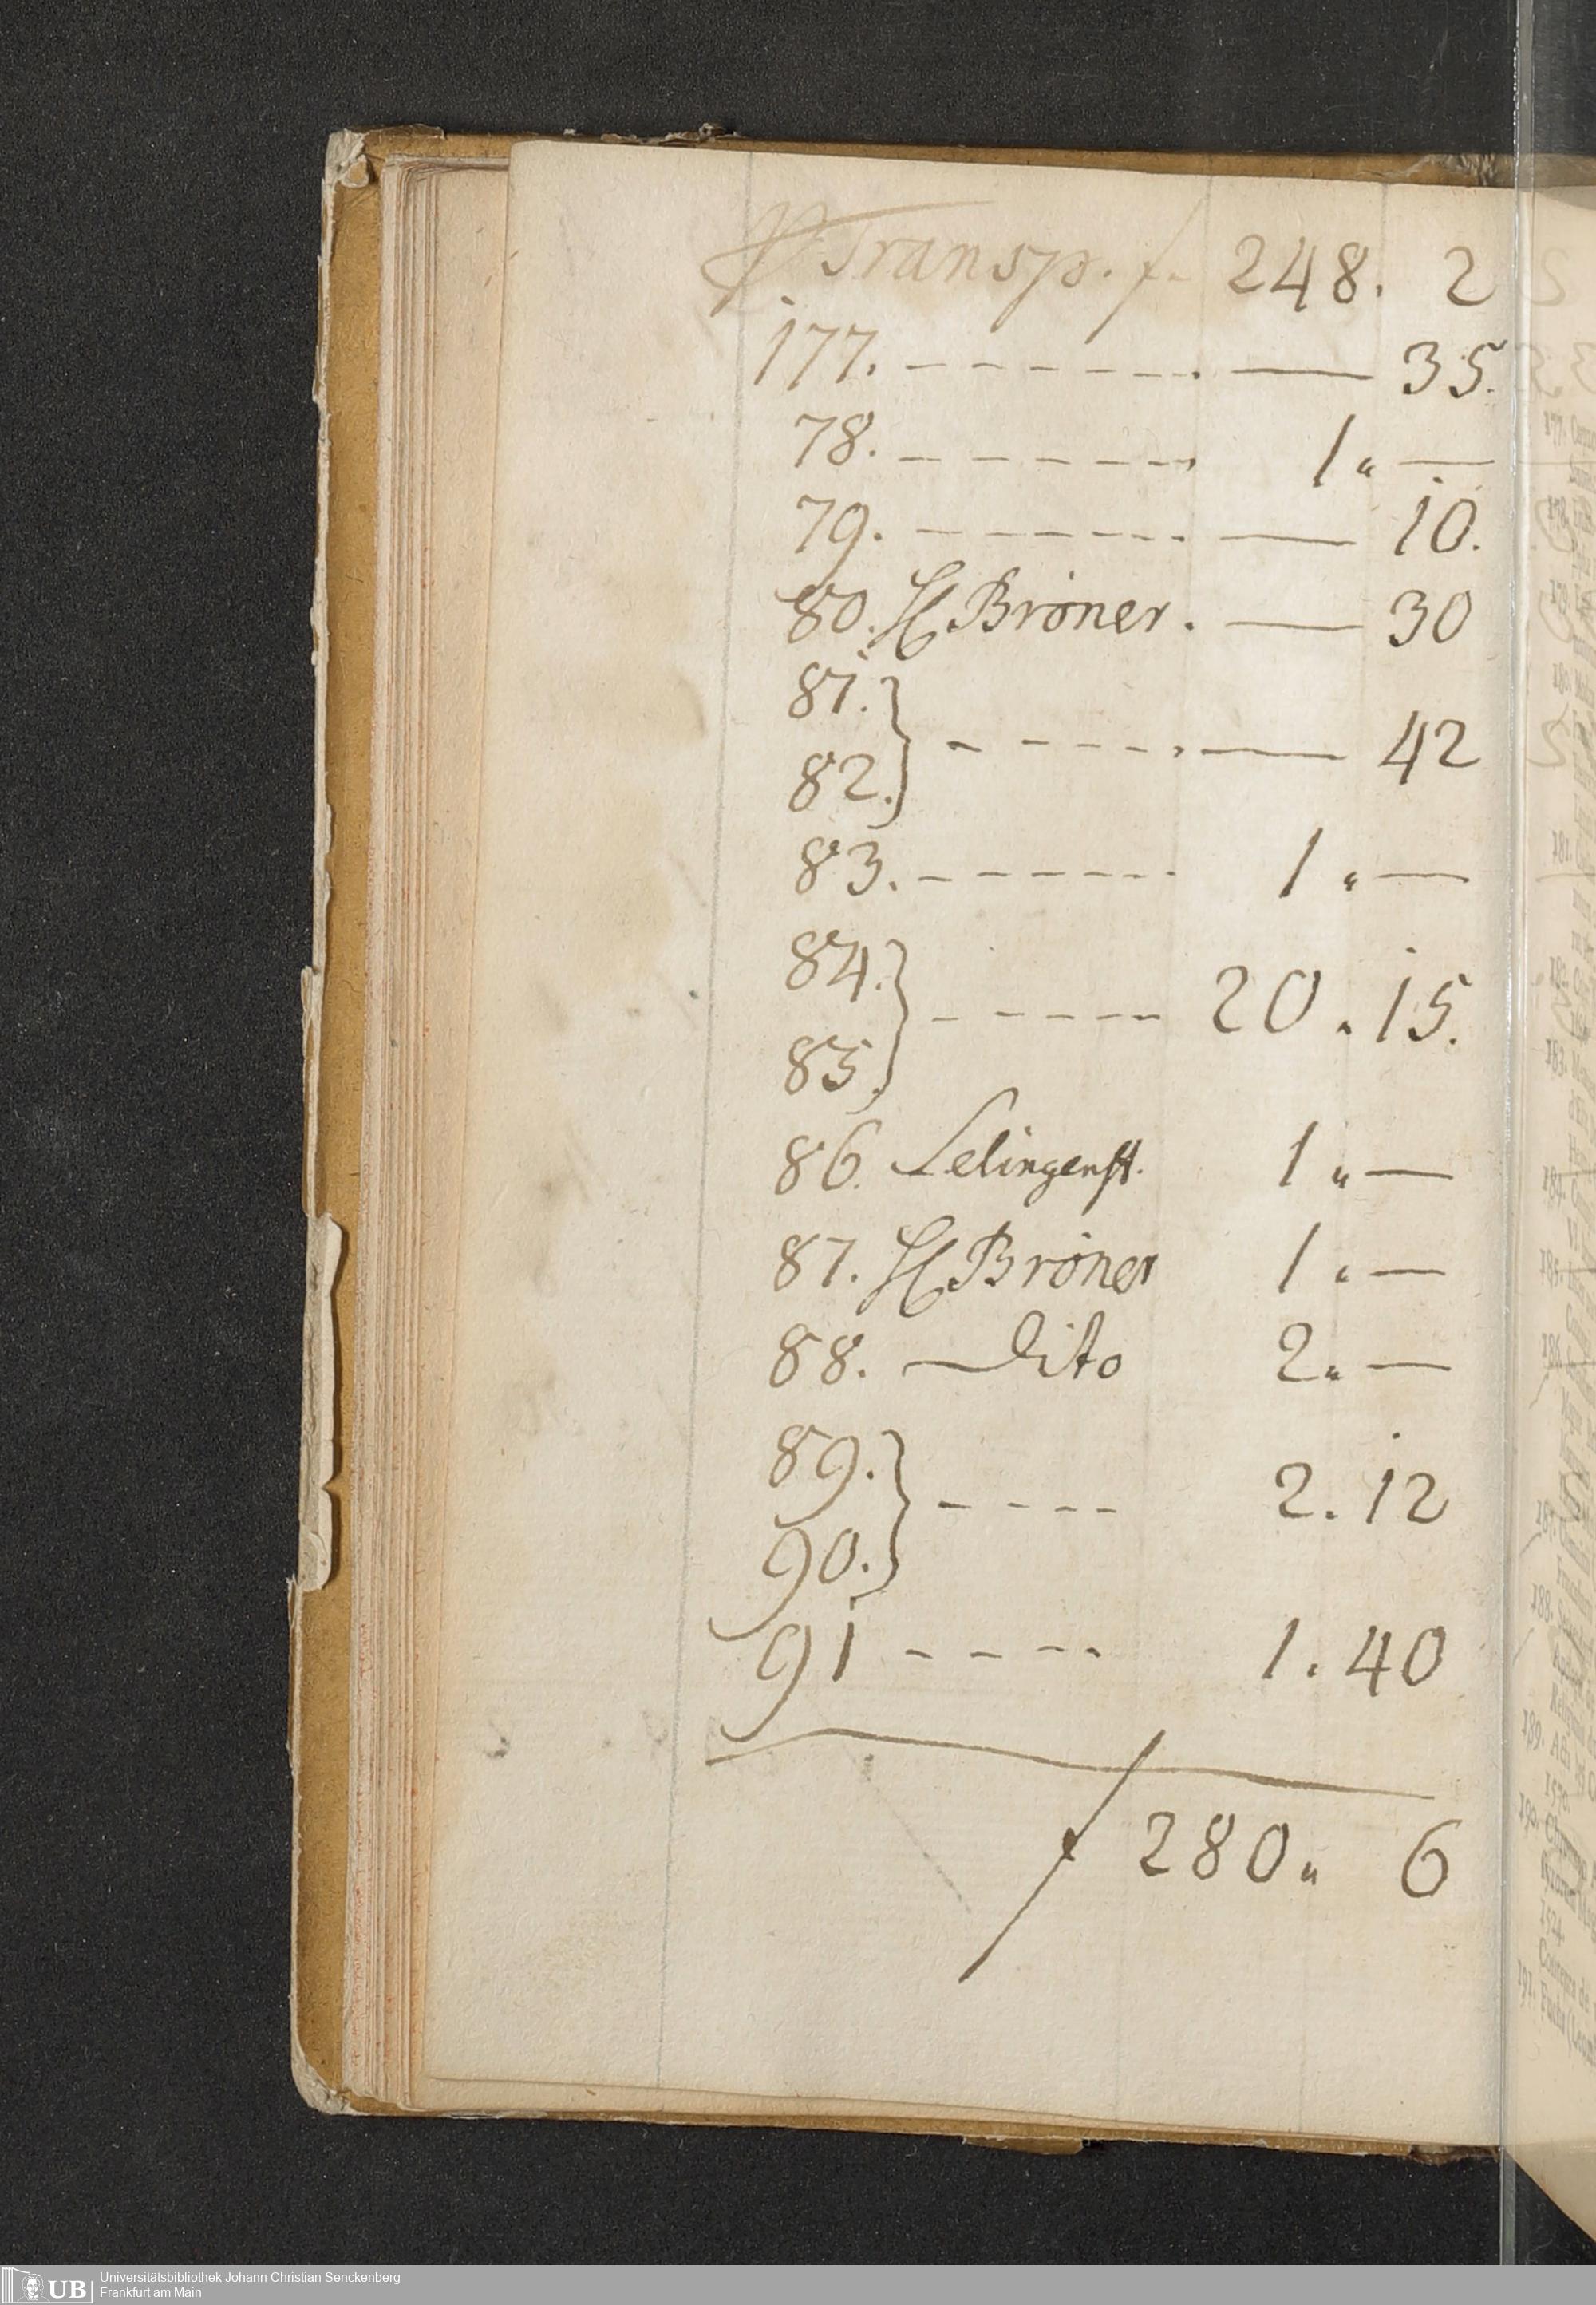 Transp. f. 248. 2
177. - - - - - - - . — 35.
78. - - - - - - 1 " —
79. - - - - - - — 10.
80. H Bröner. — 30
81.
82. } - - - - - - — 42
83. - - - - - - 1 " —
84.
85. } - - - - - 20 . 15.
86. 1 " —
87. H Bröner 1 " —
88. — Dito 2 " —
89.
90. } - - - - 2. 12
91 - - - - 1. 40
f 280 " 6
UB
Universitätsbibliothek Johann Christian Senckenberg
Frankfurt am Main